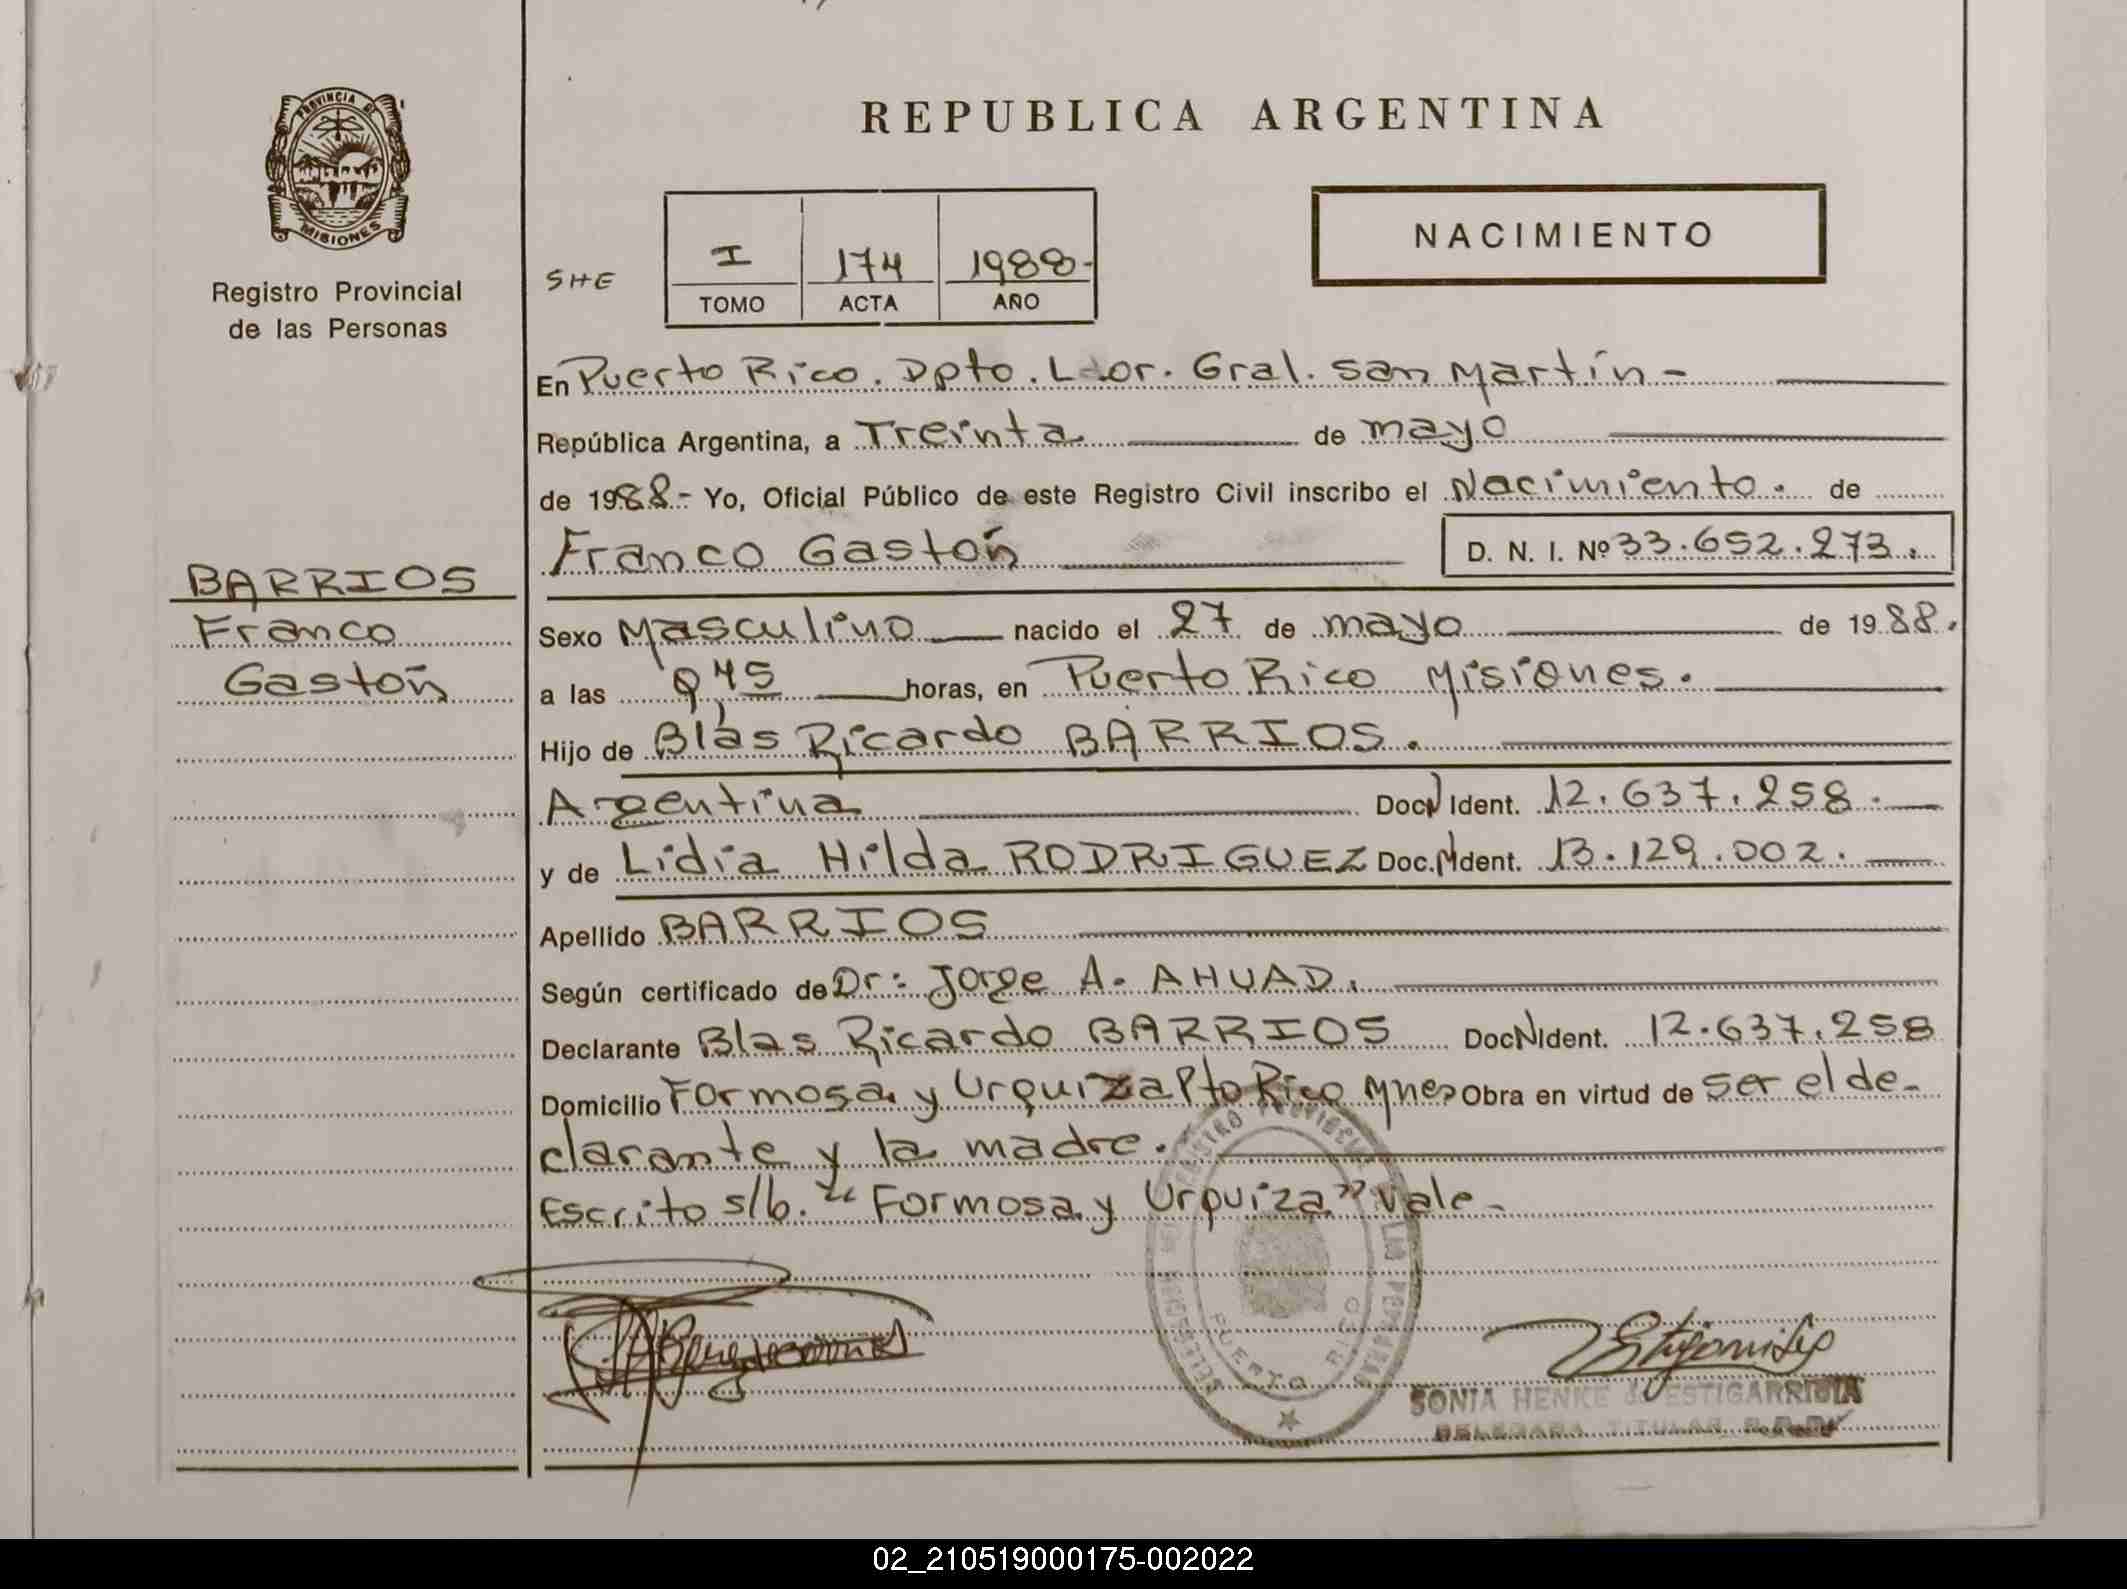 PROVINCIA DE
MISIONES
Registro Provincial
de las Personas
REPUBLICA ARGENTINA
NACIMIENTO
SHE
I 174 1988-
TOMO ACTA AÑO
En Puerto Rico. Dpto. L or. Gral. San Martín-
República Argentina, a Treinta de mayo
de 1988- Yo, Oficial Público de este Registro Civil inscribo el Nacimiento. de
Franco Gastón D. N. I. Nº 33.652.273.
BARRIOS
Franco
Gastón
Sexo Masculino nacido el 27 de mayo de 1988.
a las 9,45 horas, en Puerto Rico Misiones.
Hijo de Blas Ricardo BARRIOS.
Argentina DocN Ident. 12.637.258.
y de Lidia Hilda RODRIGUEZ Doc.N Ident. 13.129.002.
Apellido BARRIOS
Según certificado de Dr: Jorge A. AHUAD.
Declarante Blas Ricardo BARRIOS DocN Ident. 12.637.258
Domicilio Formosa y Urquiza Pto Rico Mnes Obra en virtud de ser el de-
clarante y la madre.
Escrito s/b. "Formosa y Urquiza" vale-
REGISTRO PROVINCIAL DE LAS PERSONAS
PUERTO RICO
SONIA HENKE de ESTIGARRIBIA
DELEGADA TITULAR R.P.P.
02_210519000175-002022